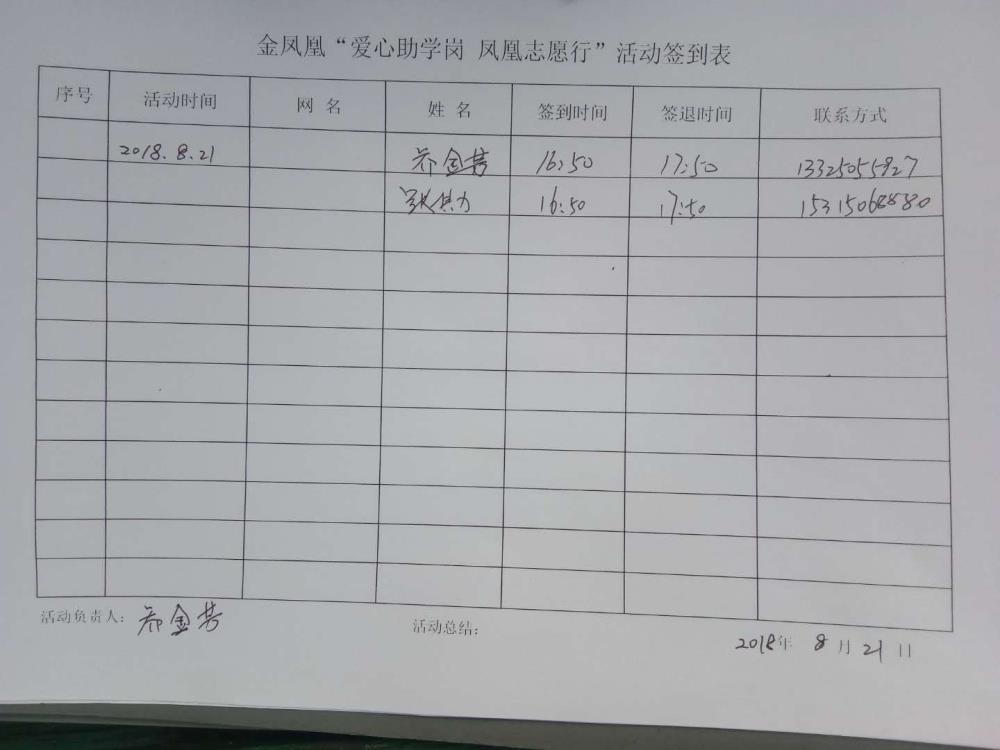 金凤凰“爱心助学岗 凤凰志愿行”活动签到表
序号 活动时间 网 名 姓 名 签到时间 签退时间 联系方式
2018.8.21 乔金芳 16:50 17:50 13325055927
16:50 17:50 15315068880
活动负责人: 乔金芳 活动总结:
2018年 8 月 21 日